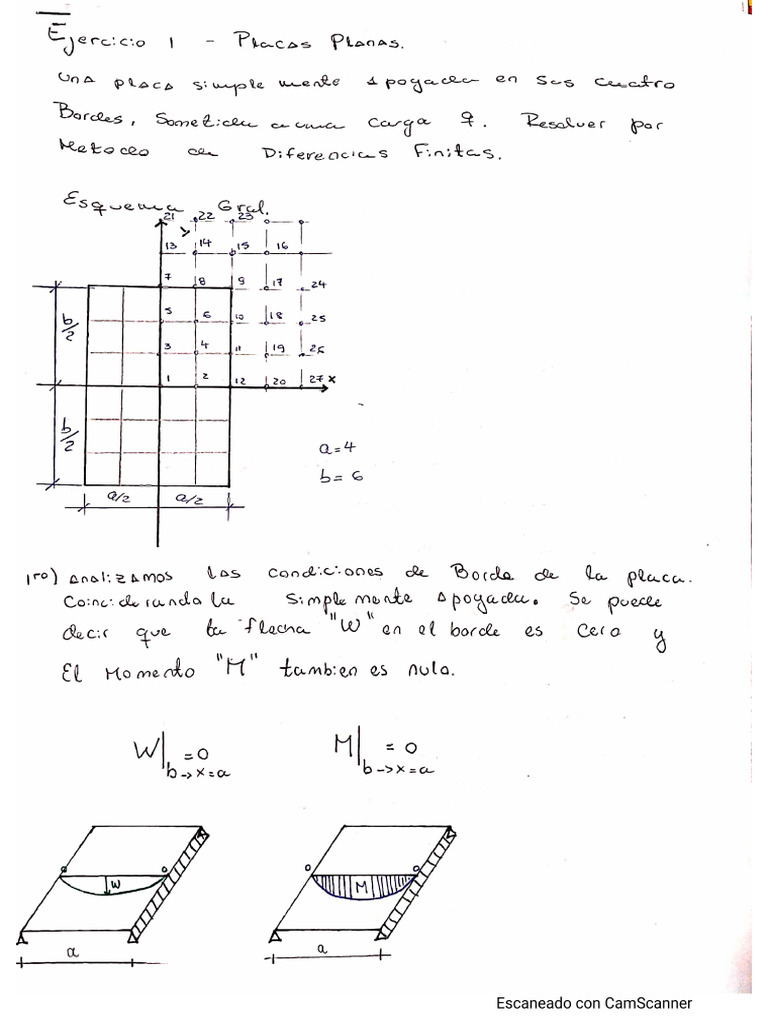 Ejercicio 1 - Placas Planas.
una placa simple mente Apoyada en sus cuatro
Bordes, Sometida a una carga q. Resolver por
Metodo de Diferencias Finitas.
Esquema Gral.
21 22 23
y
13 14 15 16
7 8 9 17 24
5 6 10 18 25
3 4 11 19 26
1 2 12 20 27 x
b/2
b/2
a/2 a/2
a=4
b= 6
1ro) Analizamos las condiciones de Borde de la placa.
Coinciderando la simple mente Apoyada. Se puede
decir que la flecha "W" en el borde es cero y
El Momento "M" tambien es nulo.
W| b->x=a =0
M| b->x=a = 0
o w o
o M o
a
a
Escaneado con CamScanner